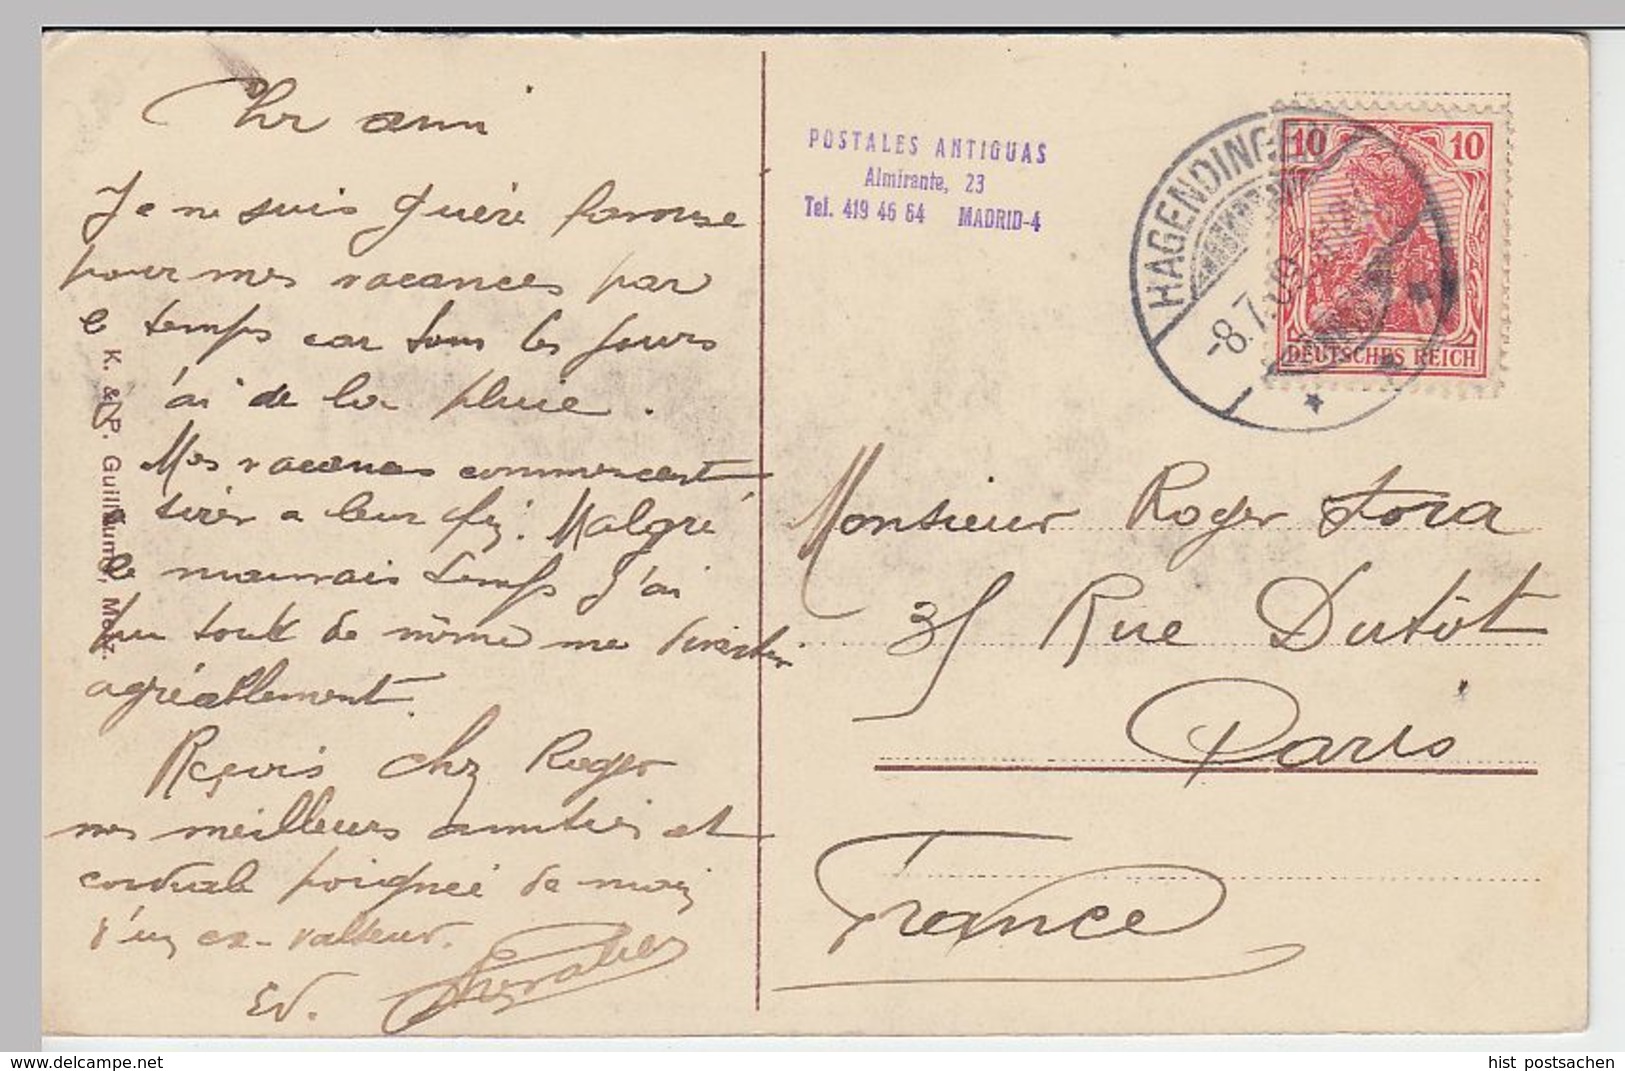 Cher ami
Je ne suis guère favorisé
pour mes vacances par
le temps car tous les jours
j'ai de la pluie.
Mes vacances commencent
a tirer a leur fin. Malgré
le mauvais temps j'ai
pu tout de même me divertir
agréablement.
Reçois cher Roger
mes meilleurs amitiés et
cordiale poignée de main
d'un ex-
Ed.
K. & P. Guillaume, Metz.
POSTALES ANTIGUAS
Almirante, 23
Tel. 419 46 64 MADRID-4
HAGENDINGEN
-8.7.09
10 10
DEUTSCHES REICH
Monsieur Roger
35 Rue Dutôt
Paris
France
www.delcampe.net
hist_postsachen